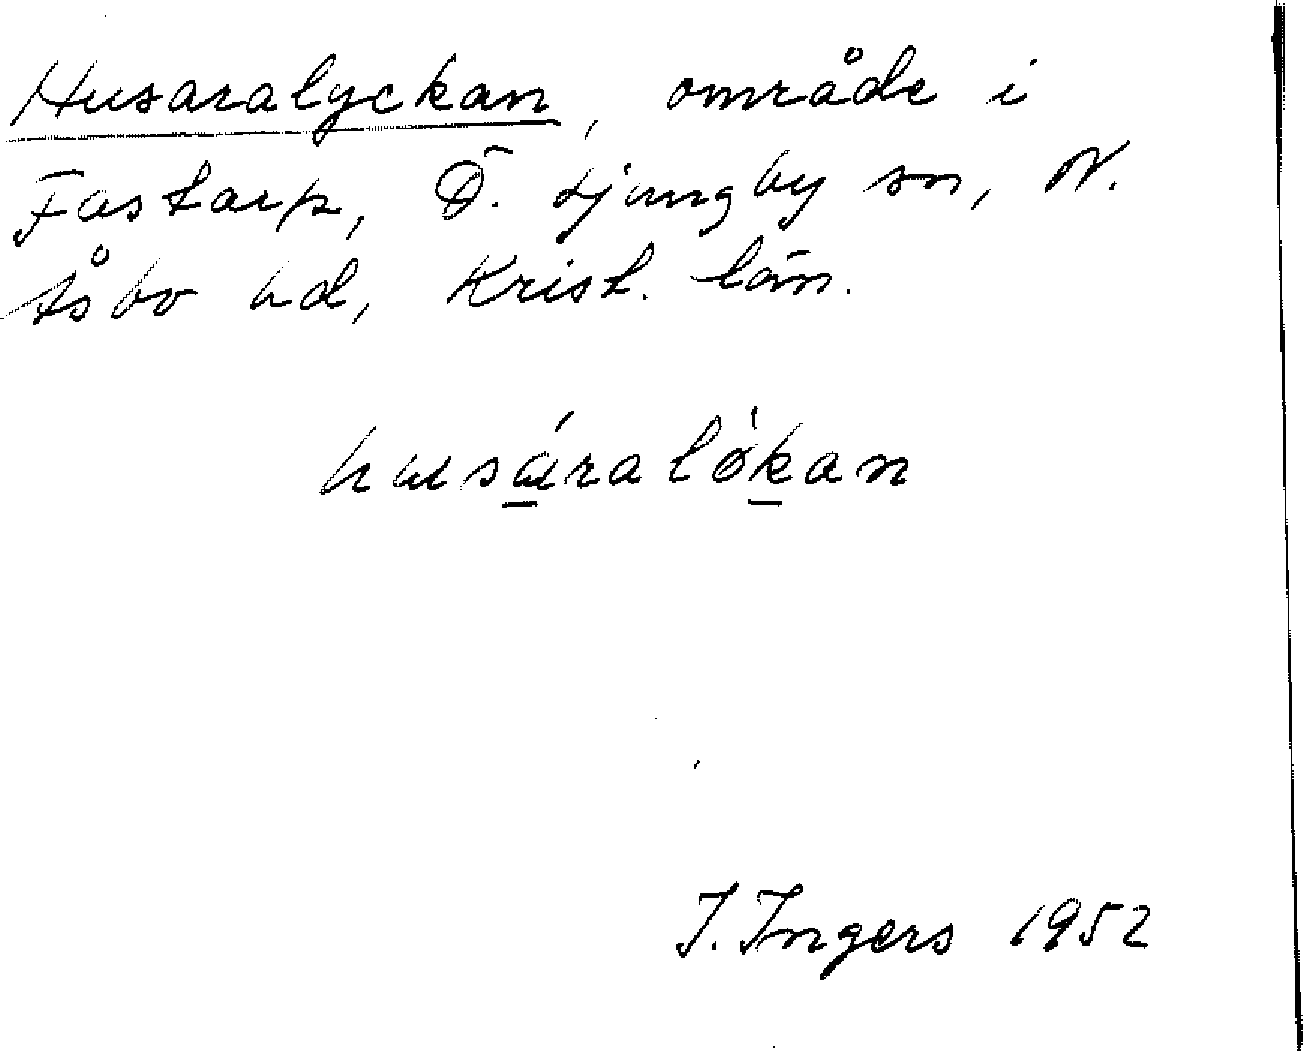 Husaralyckan, område i
Fastarp, Ö. Ljungby sn, N.
Åsbo hd, Krist. län.
husáralø̀kan
I. Ingers 1952